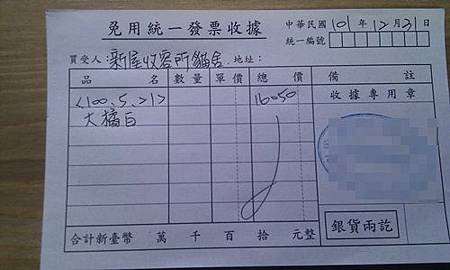 免用統一發票收據
中華民國101年12月31日
統一編號
買受人:新屋收容所貓舍 地址:
品名 數量 單價 總價 備註
<100、5、21> 1650 收據專用章
大橘白
銀貨兩訖
合計新臺幣 萬 千 百 拾 元整